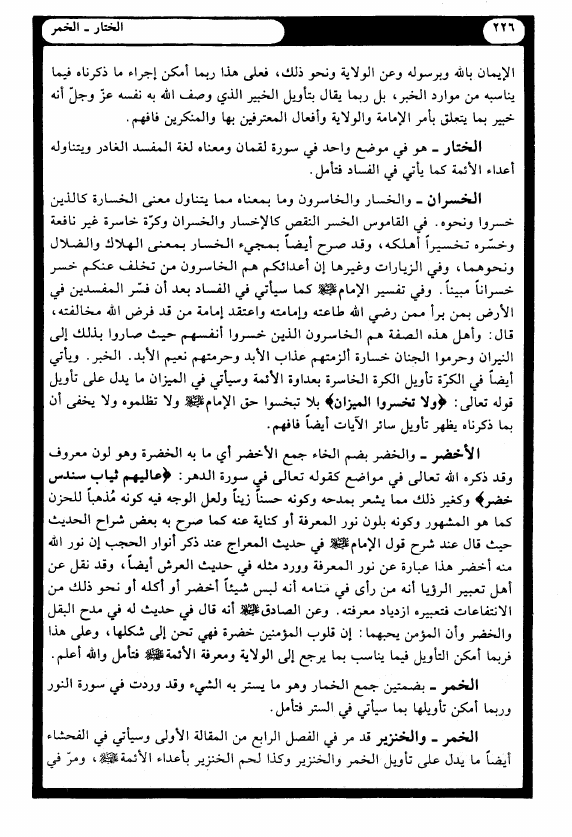 ٢٢٦
الختار ـ الخمر
الإيمان بالله وبرسوله وعن الولاية ونحو ذلك، فعلى هذا ربما أمكن إجراء ما ذكرناه فيما
يناسبه من موارد الخبر، بل ربما يقال بتأويل الخبير الذي وصف الله به نفسه عزّ وجلّ أنه
خبير بما يتعلق بأمر الإمامة والولاية وأفعال المعترفين بها والمنكرين فافهم.
الختار ـ هو في موضع واحد في سورة لقمان ومعناه لغة المفسد الغادر ويتناوله
أعداء الأئمة كما يأتي في الفساد فتأمل.
الخسران ـ والخسار والخاسرون وما بمعناه مما يتناول معنى الخسارة كالذين
خسروا ونحوه. في القاموس الخسر النقص كالإخسار والخسران وكرّة خاسرة غير نافعة
وخسّره تخسيراً أهلكه، وقد صرح أيضاً بمجيء الخسار بمعنى الهلاك والضلال
ونحوهما، وفي الزيارات وغيرها إن أعدائكم هم الخاسرون من تخلف عنكم خسر
خسراناً مبيناً. وفي تفسير الإمام ﷺ كما سيأتي في الفساد بعد أن فسّر المفسدين في
الأرض بمن برأ ممن رضي الله طاعته وإمامته واعتقد إمامة من قد فرض الله مخالفته،
قال: وأهل هذه الصفة هم الخاسرون الذين خسروا أنفسهم حيث صاروا بذلك إلى
النيران وحرموا الجنان خسارة ألزمتهم عذاب الأبد وحرمتهم نعيم الأبد. الخبر. ويأتي
أيضاً في الكرّة تأويل الكرة الخاسرة بعداوة الأئمة وسيأتي في الميزان ما يدل على تأويل
قوله تعالى: ﴿ولا تخسروا الميزان﴾ بلا تبخسوا حق الإمام ﷺ ولا تظلموه ولا يخفى أن
بما ذكرناه يظهر تأويل سائر الآيات أيضاً فافهم.
الأخضر ـ والخضر بضم الخاء جمع الأخضر أي ما به الخضرة وهو لون معروف
وقد ذكره الله تعالى في مواضع كقوله تعالى في سورة الدهر: ﴿عاليهم ثياب سندس
خضر﴾ وكغير ذلك مما يشعر بمدحه وكونه حسناً زيناً ولعل الوجه فيه كونه مُذهباً للحزن
كما هو المشهور وكونه بلون نور المعرفة أو كناية عنه كما صرح به بعض شراح الحديث
حيث قال عند شرح قول الإمام ﷺ في حديث المعراج عند ذكر أنوار الحجب إن نور الله
منه أخضر هذا عبارة عن نور المعرفة وورد مثله في حديث العرش أيضاً، وقد نقل عن
أهل تعبير الرؤيا أنه من رأى في منامه أنه لبس شيئاً أخضر أو أكله أو نحو ذلك من
الانتفاعات فتعبيره ازدياد معرفته. وعن الصادق ﷺ أنه قال في حديث له في مدح البقل
والخضر وأن المؤمن يحبهما: إن قلوب المؤمنين خضرة فهي تحن إلى شكلها، وعلى هذا
فربما أمكن التأويل فيما يناسب بما يرجع إلى الولاية ومعرفة الأئمة ﷺ فتأمل والله أعلم.
الخمر ـ بضمتين جمع الخمار وهو ما يستر به الشيء وقد وردت في سورة النور
وربما أمكن تأويلها بما سيأتي في الستر فتأمل.
الخمر ـ والخنزير قد مر في الفصل الرابع من المقالة الأولى وسيأتي في الفحشاء
أيضاً ما يدل على تأويل الخمر والخنزير وكذا لحم الخنزير بأعداء الأئمة ﷺ، ومرّ في